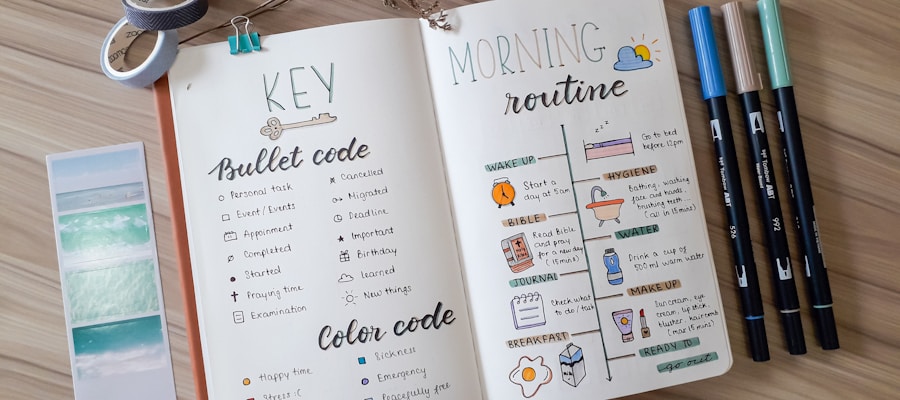 KEY
Bullet code
Personal task
Event/Events
Appoinment
Completed
Started
Praying time
Examination
Cancelled
Migrated
Deadline
Important
Birthday
learned
New things
Color code
Happy time
Stress :(
Sickness
Emergency
Peacefully free
MORNING
routine
zzz
Go to bed
before 12pm
WAKE UP
Start a
day at 5am
HYGIENE
Bathing, washing
face and hands,
brushing teeth...
(all in 15mins)
BIBLE
Read Bible
and pray
for a new day
(15mins)
WATER
Drink a cup of
500ml warm water
JOURNAL
Check what
to do / task
MAKE UP
Sun cream, eye
cream, lip stick,
blusher, hair comb
(max 15mins)
BREAKFAST
READY TO
go out
Tombow ABT
526
Tombow ABT
992
Tombow ABT